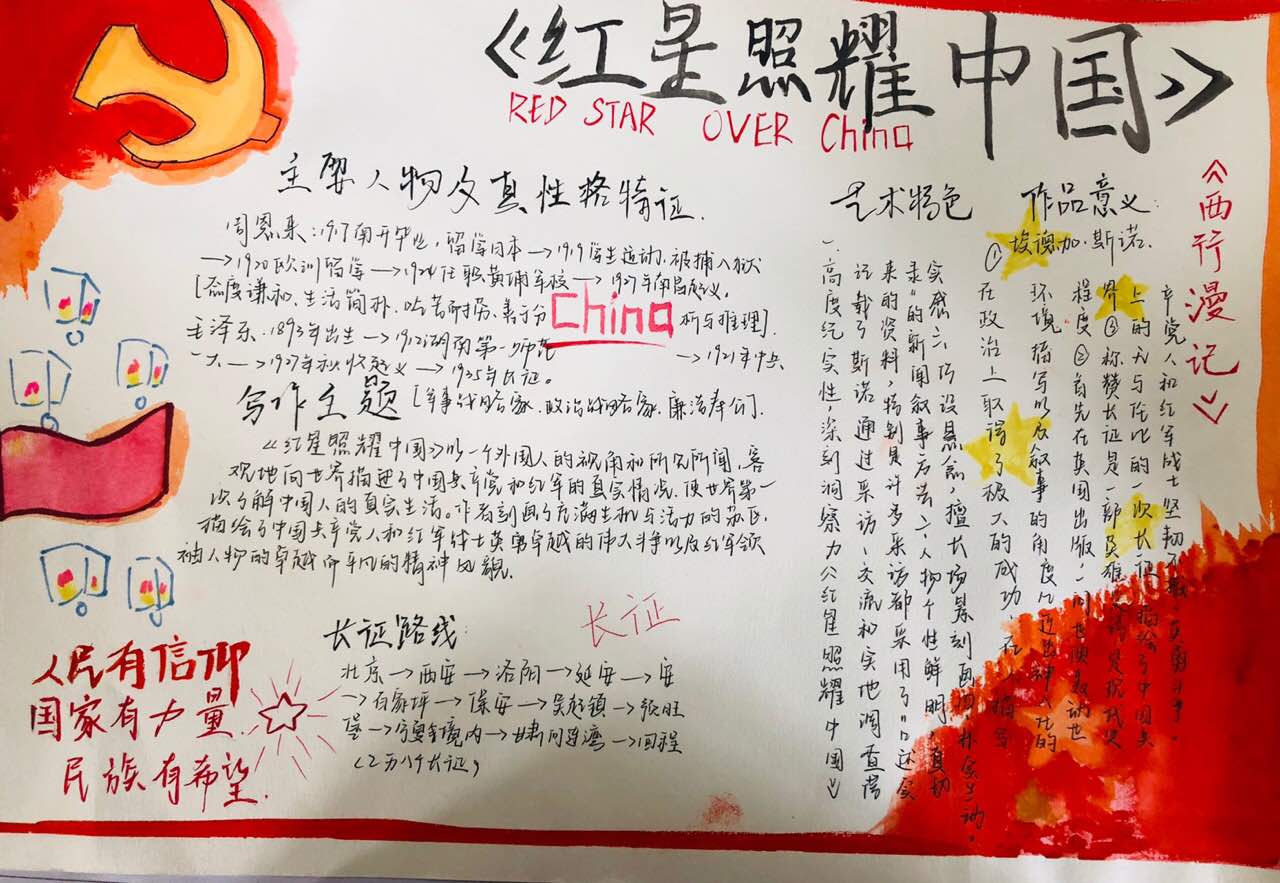 《红星照耀中国》
RED STAR OVER China
《西行漫记》
主要人物及真性格特征.
周恩来:1917南开毕业,留学日本→1919学生运动,被捕入狱
→1920欧洲留学→1924任职黄埔军校→1927年南昌起义.
[态度谦和、生活简朴、吃苦耐劳、善于分析与推理].
China
毛泽东、1893年出生→1912湖南第一师范→1921年中共
一大→1927年秋收起义→1935年长征。
[军事战略家、政治战略家、廉洁奉公].
写作主题
《红星照耀中国》以一个外国人的视角和所见所闻,客
观地向世界描述了中国共产党和红军的真实情况,使世界第一
次了解中国人的真实生活。作者刻画了充满生机与活力的苏区,
描绘了中国共产党人和红军战士英勇卓越的伟大斗争以及红军领
袖人物的卓越而平凡的精神风貌.
长征路线:
长征
北京→西安→洛阳→延安→安
→百家坪→保安→吴起镇→张旺
堡→宁夏境内→甘肃→回程
(二万八千长征)
人民有信仰
国家有力量.
民族有希望.
艺术特色
一、高度纪实性,深刻洞察力《红星照耀中国》
记载了斯诺通过采访、交流和实地调查带
来的资料,特别是许多采访都采用了"还实
录"的新闻叙事方法二、人物个性鲜明,真切
实感三、巧设悬念,擅长场景刻画四、朴实生动.
作品意义:
埃德加·斯诺.
①在政治上取得了极大的成功,在人
环境描写以及叙事的角度
程度②首先在英国出版,一问世便轰动世
界③称赞长征是一部英雄史诗是现代史
上的无与伦比的一次长征,描绘了中国共
产党人和红军战士坚韧不拔、英勇斗争.